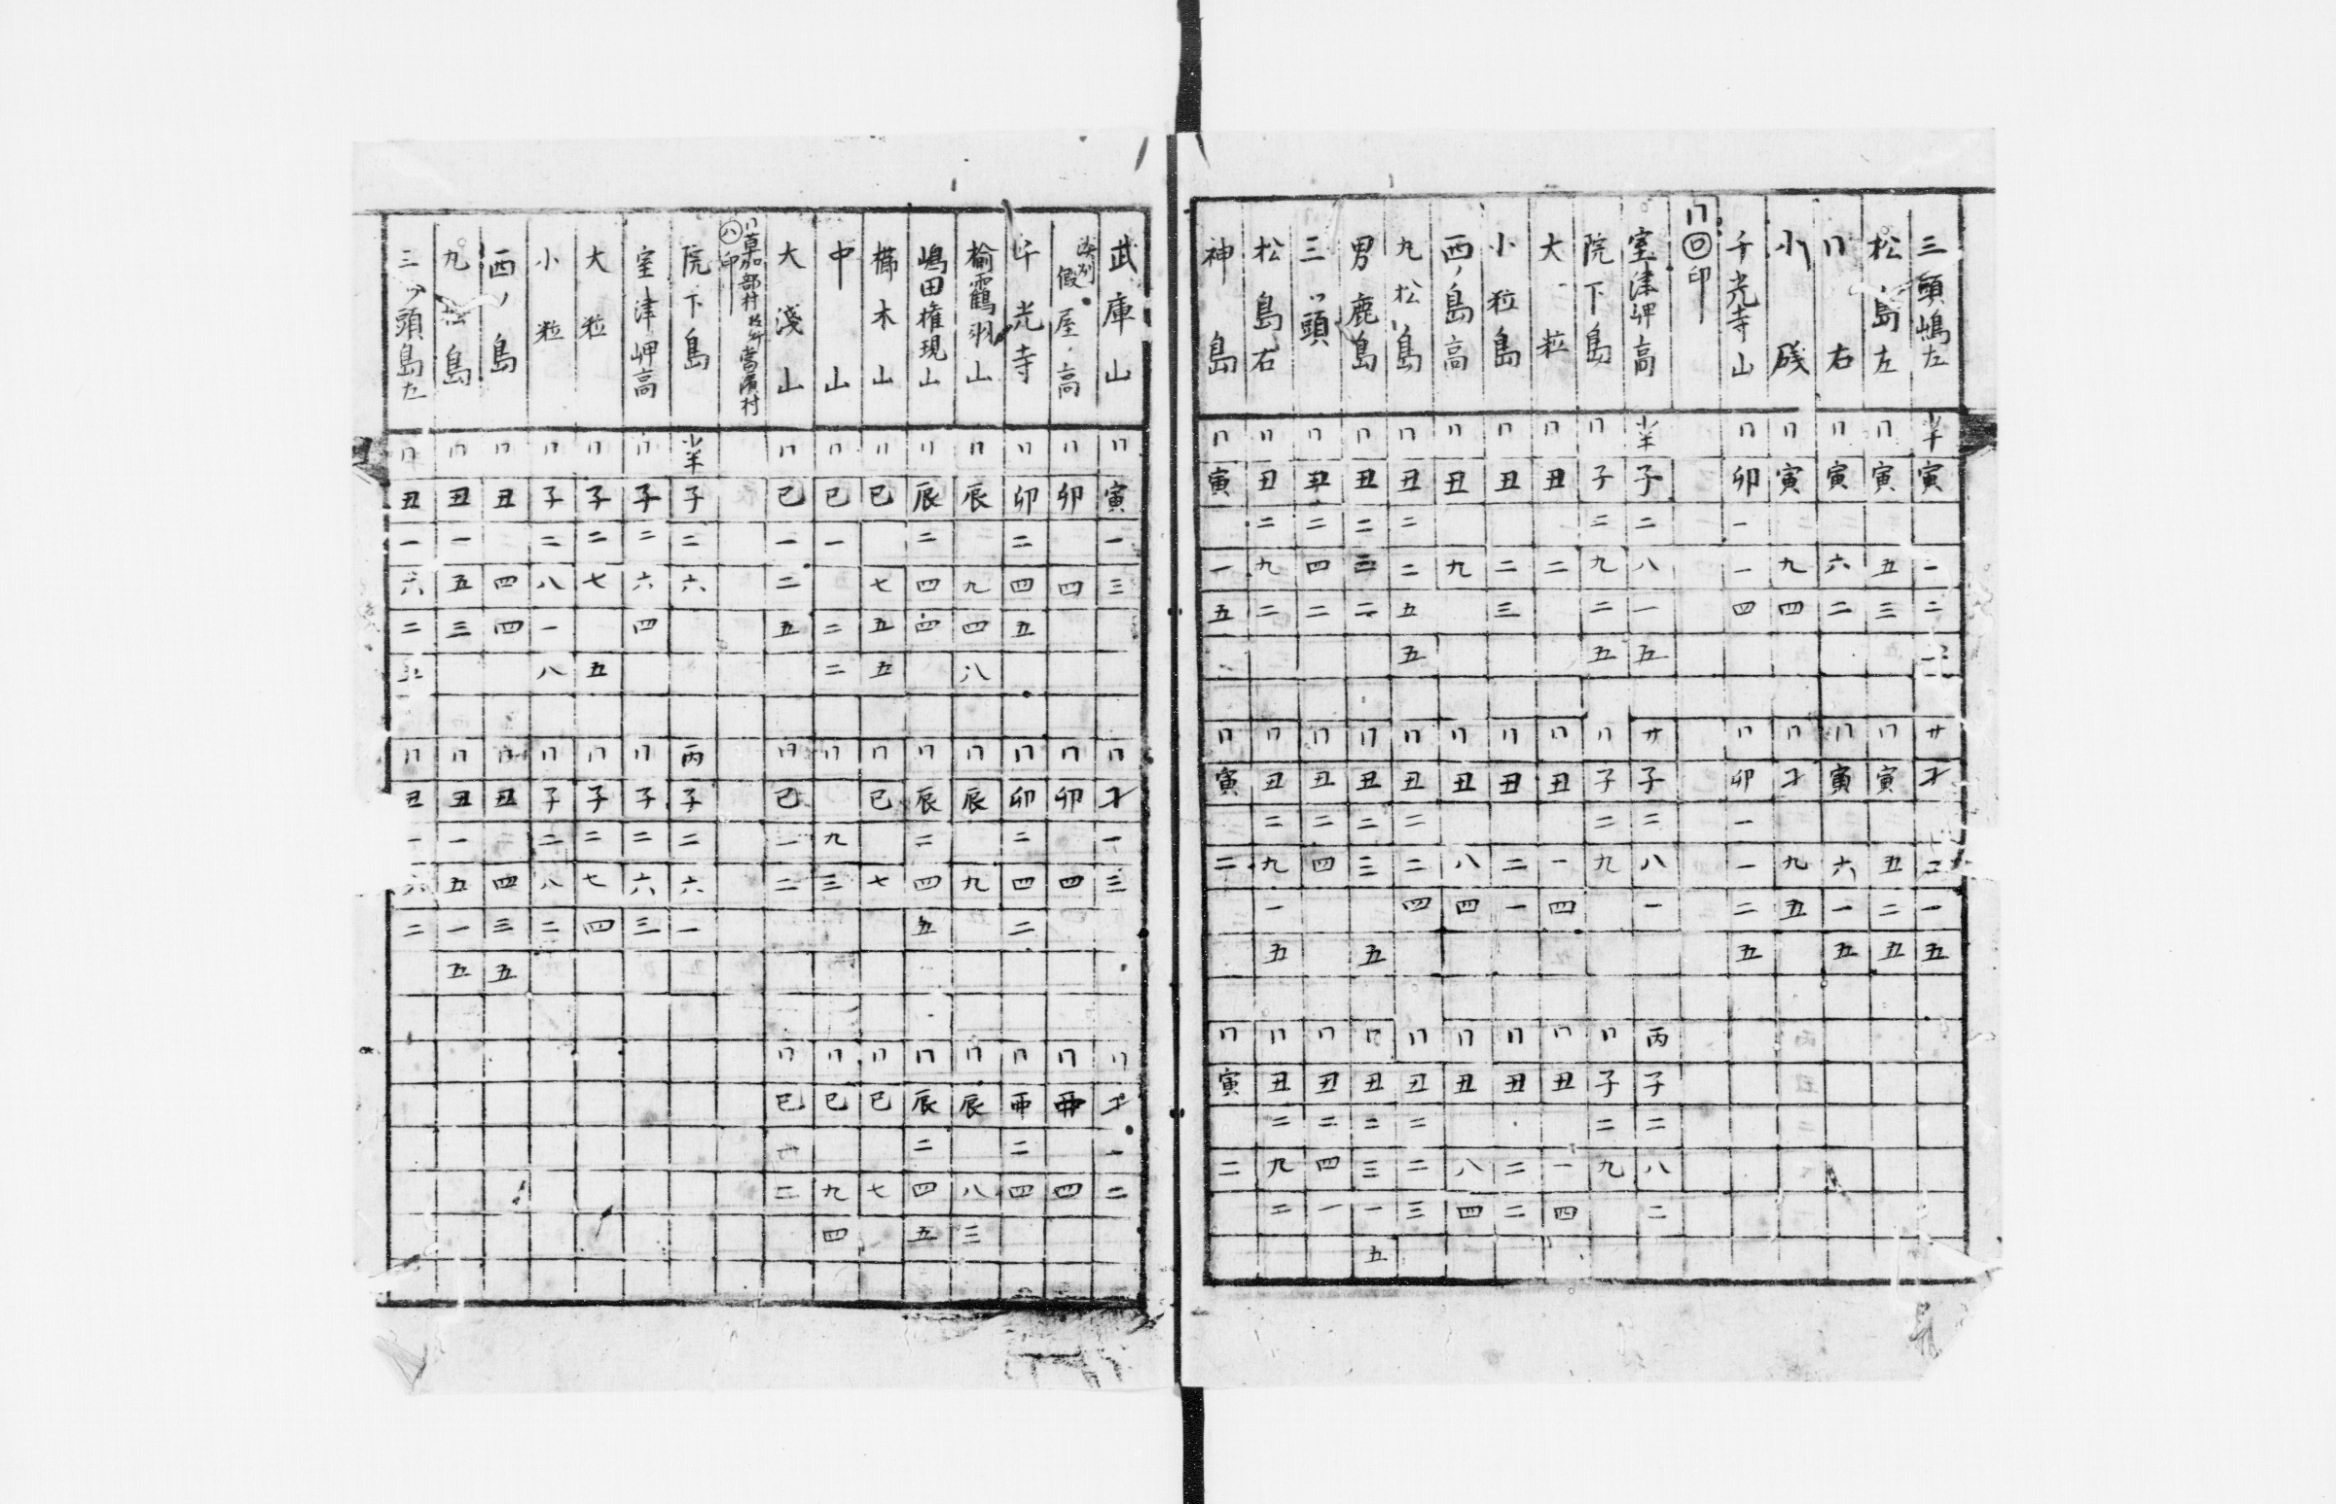 三頭嶋左 半 寅 一 二 廿 才 一 五
松島左 〃 寅 五 三 〃 寅 五 二 五
〃右 〃 寅 六 二 〃 寅 六 一 五
小磯 〃 寅 九 四 〃 才 九 五
千光寺山 〃 卯 一 一 四 〃 卯 一 一 二 五
〃㋺印
室津岬高 半 子 二 八 一 五 廿 子 二 八 一 丙 子 二 八 二
院下島 〃 子 二 九 二 五 〃 子 二 九 〃 子 二 九
大粒 〃 丑 二 〃 丑 一 四 〃 丑 一 四
小粒島 〃 丑 二 三 〃 丑 二 一 〃 丑 二 二
西ノ島高 〃 丑 九 〃 丑 八 四 〃 丑 八 四
丸松島 〃 丑 二 二 五 五 〃 丑 二 二 四 〃 丑 二 二 三
男鹿島 〃 丑 二 三 二 〃 丑 二 三 五 〃 丑 二 三 一 五
三ツ頭 〃 丑 二 四 二 〃 丑 二 四 〃 丑 二 四 一
松島右 〃 丑 二 九 二 〃 丑 二 九 一 五 〃 丑 二 九 二
神島 〃 寅 一 五 〃 寅 二 〃 寅 二
武庫山 〃 寅 一 三 〃 才 一 三 〃 才 一 二
淡州 假屋高 〃 卯 四 〃 卯 四 〃 卯 四
千光寺 〃 卯 二 四 五 〃 卯 二 四 二 〃 卯 二 四
楡靏羽山 〃 辰 九 四 八 〃 辰 九 〃 辰 八 三
嶋田権現山 〃 辰 二 四 四 〃 辰 二 四 五 〃 辰 二 四 五
櫛木山 〃 巳 七 五 五 〃 巳 七 〃 巳 七
中山 〃 巳 一 二 二 〃 九 三 〃 巳 九 四
大淺山 〃 巳 一 二 五 〃 巳 一 二 〃 巳 二
㋩印
院下島 半 子 二 六 丙 子 二 六 一
室津岬高 〃 子 二 六 四 〃 子 二 六 三
大粒 〃 子 二 七 五 〃 子 二 七 四
小粒 〃 子 二 八 一 八 〃 子 二 八 二
西ノ島 〃 丑 四 四 〃 丑 四 三 五
丸松島 〃 丑 一 五 三 〃 丑 一 五 一 五
三ツ頭島左 〃 丑 一 六 二 〃 丑 一 六 二